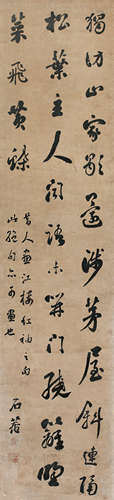 獨訪山家歇還涉茅屋斜連隔
松葉主人聞語未開門繞籬野
菜飛黃蝶
昔人画江樓紅袖之句
此絕句亦可画也
石菴